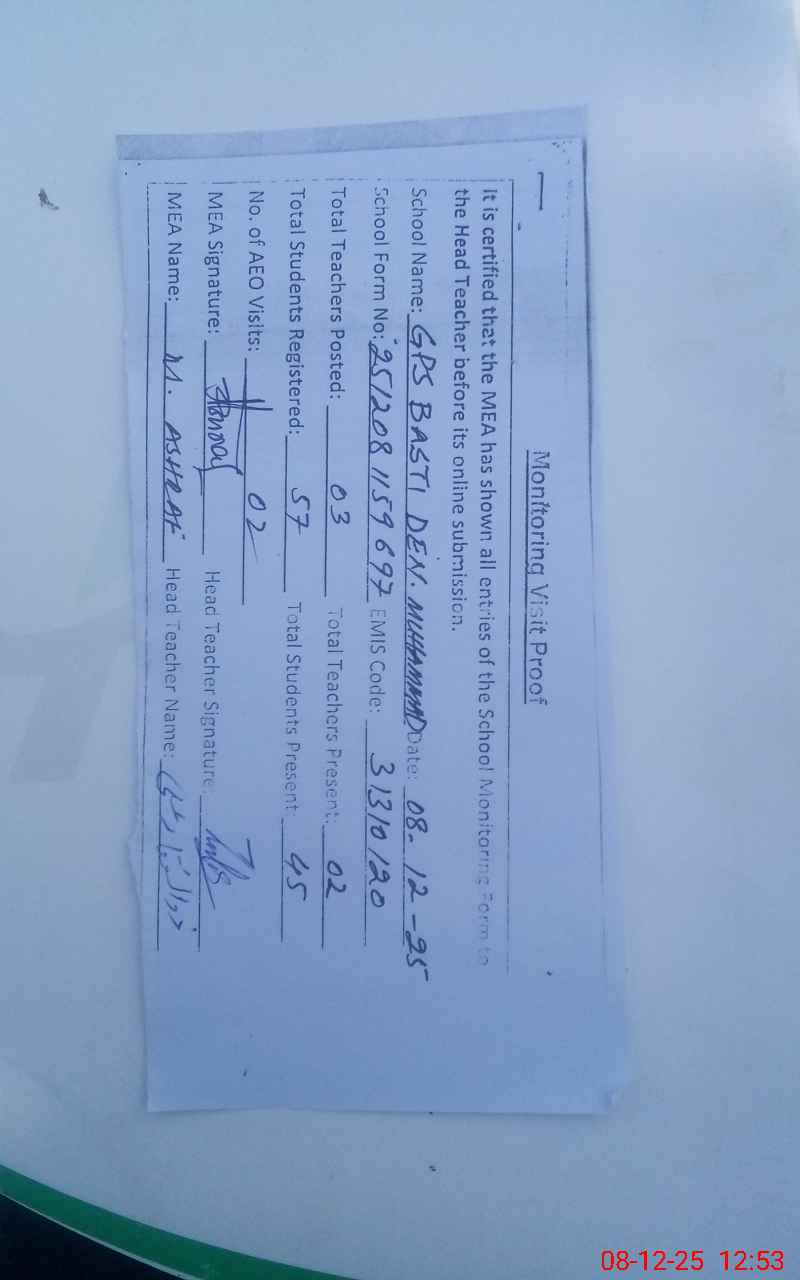 Monitoring Visit Proof
It is certified that the MEA has shown all entries of the School Monitoring Form to
the Head Teacher before its online submission.
School Name: GPS BASTI DEN. MUHAMMAD Date: 08-12-25
School Form No: 2512081159697 EMIS Code: 31310120
Total Teachers Posted: 03 Total Teachers Present: 02
Total Students Registered: 57 Total Students Present: 45
No. of AEO Visits: 02
MEA Signature: Head Teacher Signature:
MEA Name: M. ASHRAF Head Teacher Name:
08-12-25 12:53